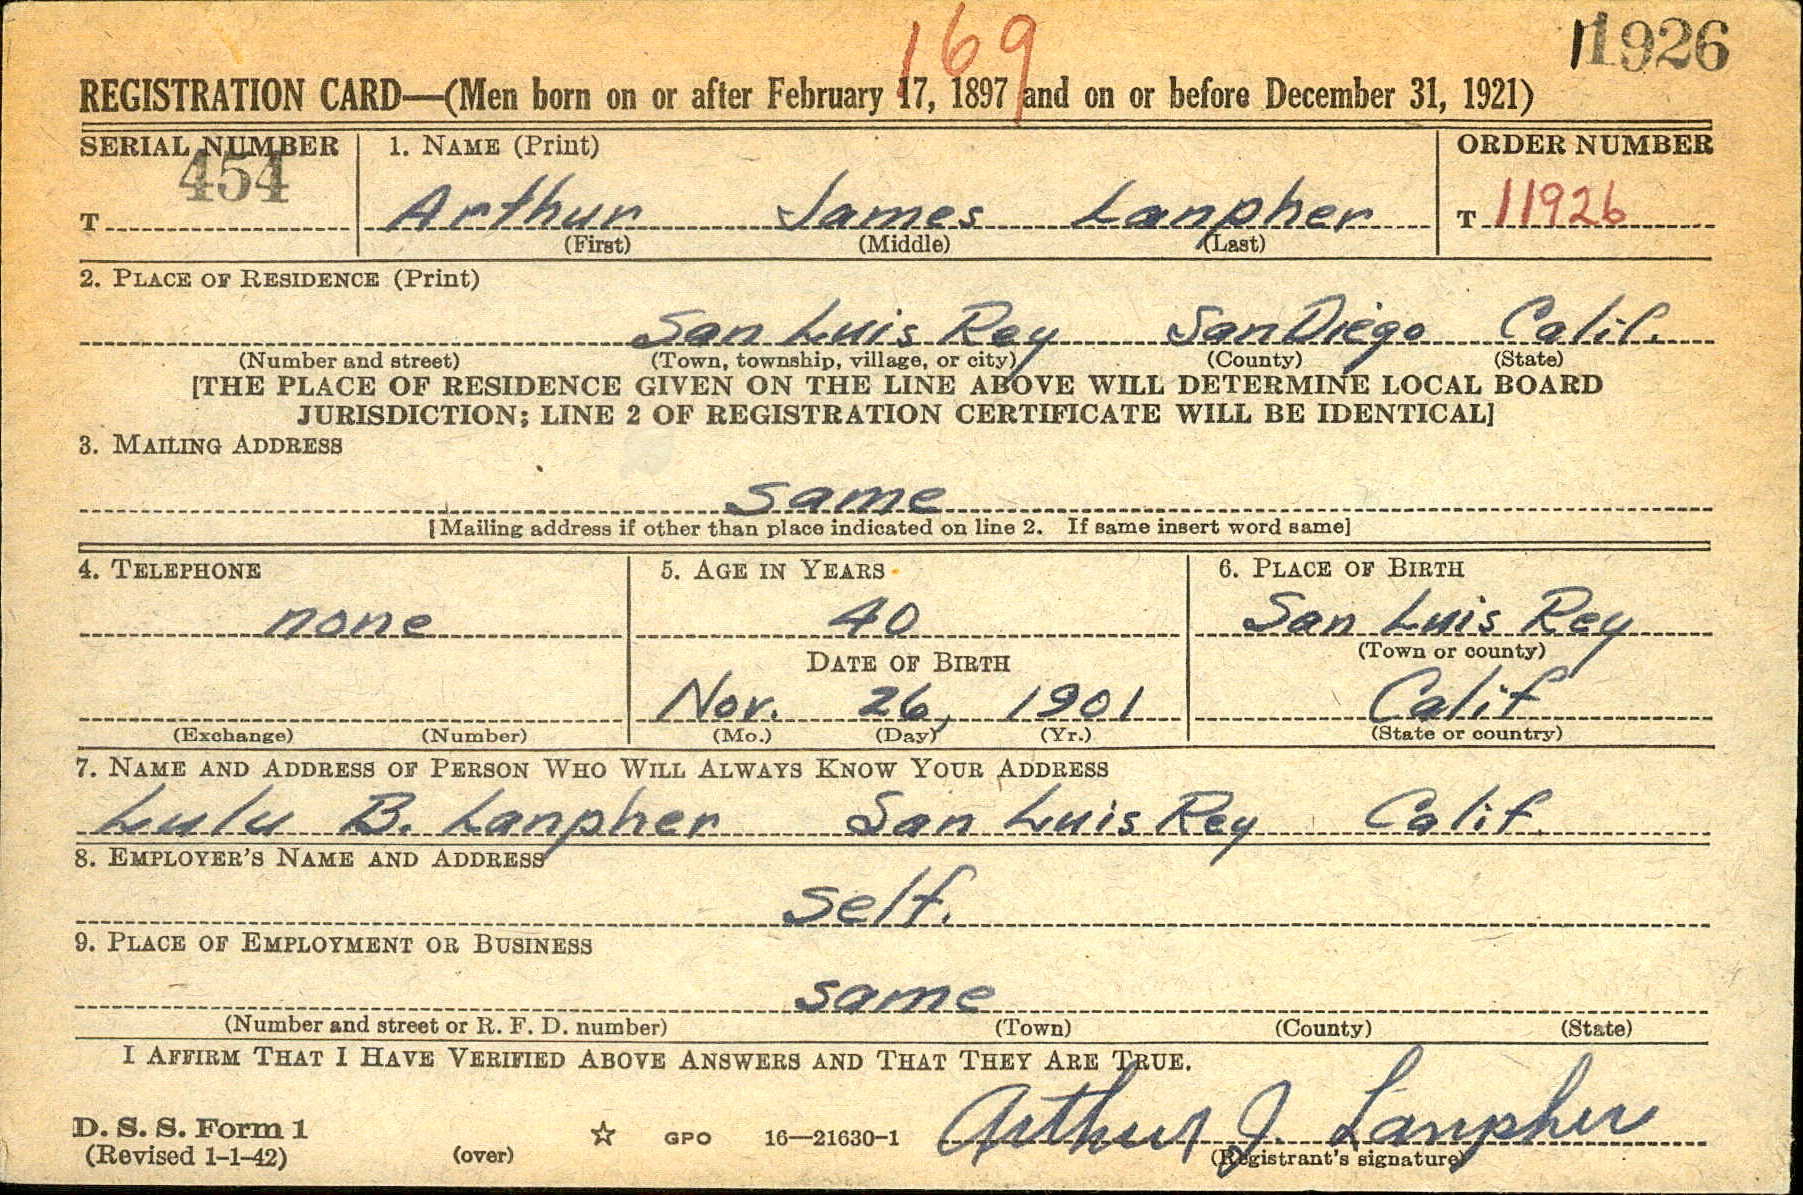 169
11926
REGISTRATION CARD—(Men born on or after February 17, 1897 and on or before December 31, 1921)
SERIAL NUMBER 1. NAME (Print) ORDER NUMBER
454
T Arthur James Lanpher T 11926
(First) (Middle) (Last)
2. PLACE OF RESIDENCE (Print)
San Luis Rey San Diego Calif.
(Number and street) (Town, township, village, or city) (County) (State)
[THE PLACE OF RESIDENCE GIVEN ON THE LINE ABOVE WILL DETERMINE LOCAL BOARD
JURISDICTION; LINE 2 OF REGISTRATION CERTIFICATE WILL BE IDENTICAL]
3. MAILING ADDRESS
same
[Mailing address if other than place indicated on line 2. If same insert word same]
4. TELEPHONE 5. AGE IN YEARS 6. PLACE OF BIRTH
none 40 San Luis Rey
DATE OF BIRTH (Town or county)
Nov. 26, 1901 Calif
(Exchange) (Number) (Mo.) (Day) (Yr.) (State or country)
7. NAME AND ADDRESS OF PERSON WHO WILL ALWAYS KNOW YOUR ADDRESS
Lulu B. Lanpher San Luis Rey Calif.
8. EMPLOYER'S NAME AND ADDRESS
self.
9. PLACE OF EMPLOYMENT OR BUSINESS
same
(Number and street or R. F. D. number) (Town) (County) (State)
I AFFIRM THAT I HAVE VERIFIED ABOVE ANSWERS AND THAT THEY ARE TRUE.
D. S. S. Form 1 Arthur J. Lanpher
(Revised 1-1-42) (over) ☆ GPO 16—21630-1 (Registrant's signature)